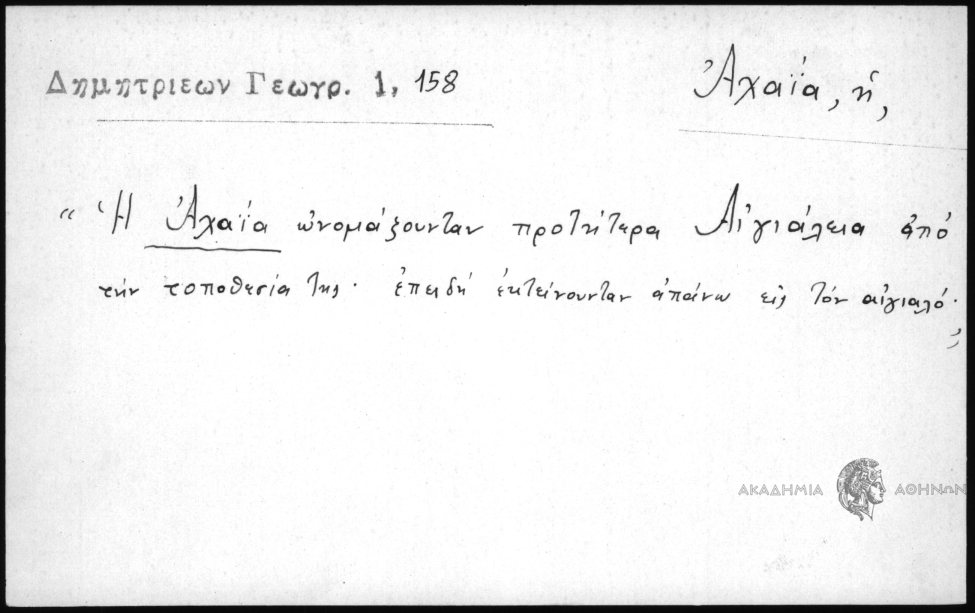 Δημητριεων Γεωγρ. 1, 158
Ἀχαΐα, ἡ,
“ Ἡ Ἀχαΐα ὠνομάζουνταν προτήτερα Αἰγιάλεια ἀπό
τήν τοποθεσία της· ἐπειδή ἐκτείνουνταν ἀπάνω εἰς τόν αἰγιαλό· ”
ΑΚΑΔΗΜΙΑ ΑΘΗΝΩΝ